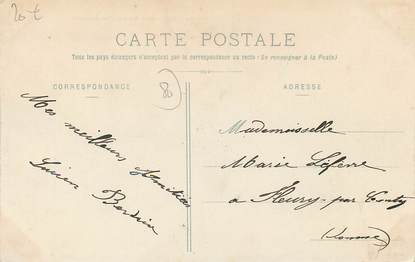 20 €
CARTE POSTALE
Tous les pays étrangers n'acceptent pas la correspondance au recto (Se renseigner à la Poste)
CORRESPONDANCE
80
ADRESSE
Mes meilleurs Amitiés
Lucien
Mademoiselle
Marie Lefevre
a Fleury par Conty
(Somme)